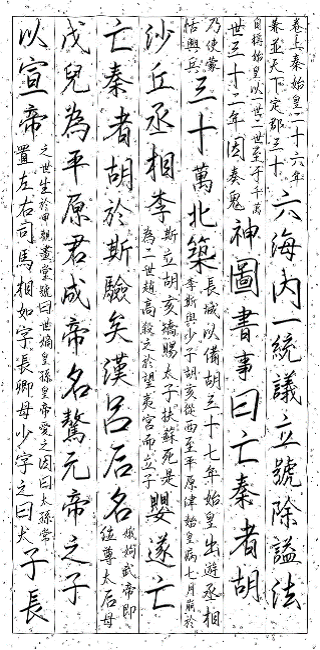 卷上秦始皇二十六年
兼並天下定郡三十
六海內一統議立號除謚法
自稱始皇以一世二世至于千萬
世三十二年因奏鬼
神圖書事曰亡秦者胡
乃使蒙
恬興兵
三十萬北築
長城以備胡三十七年始皇出遊丞相
李斯與少子胡亥從西至平原津始皇病七月崩於
沙丘丞相李
斯立胡亥矯賜太子扶蘇死是
為二世趙高殺之於望夷宮而立子
嬰遂亡
亡秦者胡於斯驗矣漢呂后名
娥姁武帝即
位尊太后母
戊兒為平原君成帝名驁元帝之子
以宣帝
之世生於甲觀畫堂號曰世嫡皇孫皇帝愛之因曰太孫常
置左右司馬相如字長卿母少字之曰犬
子長